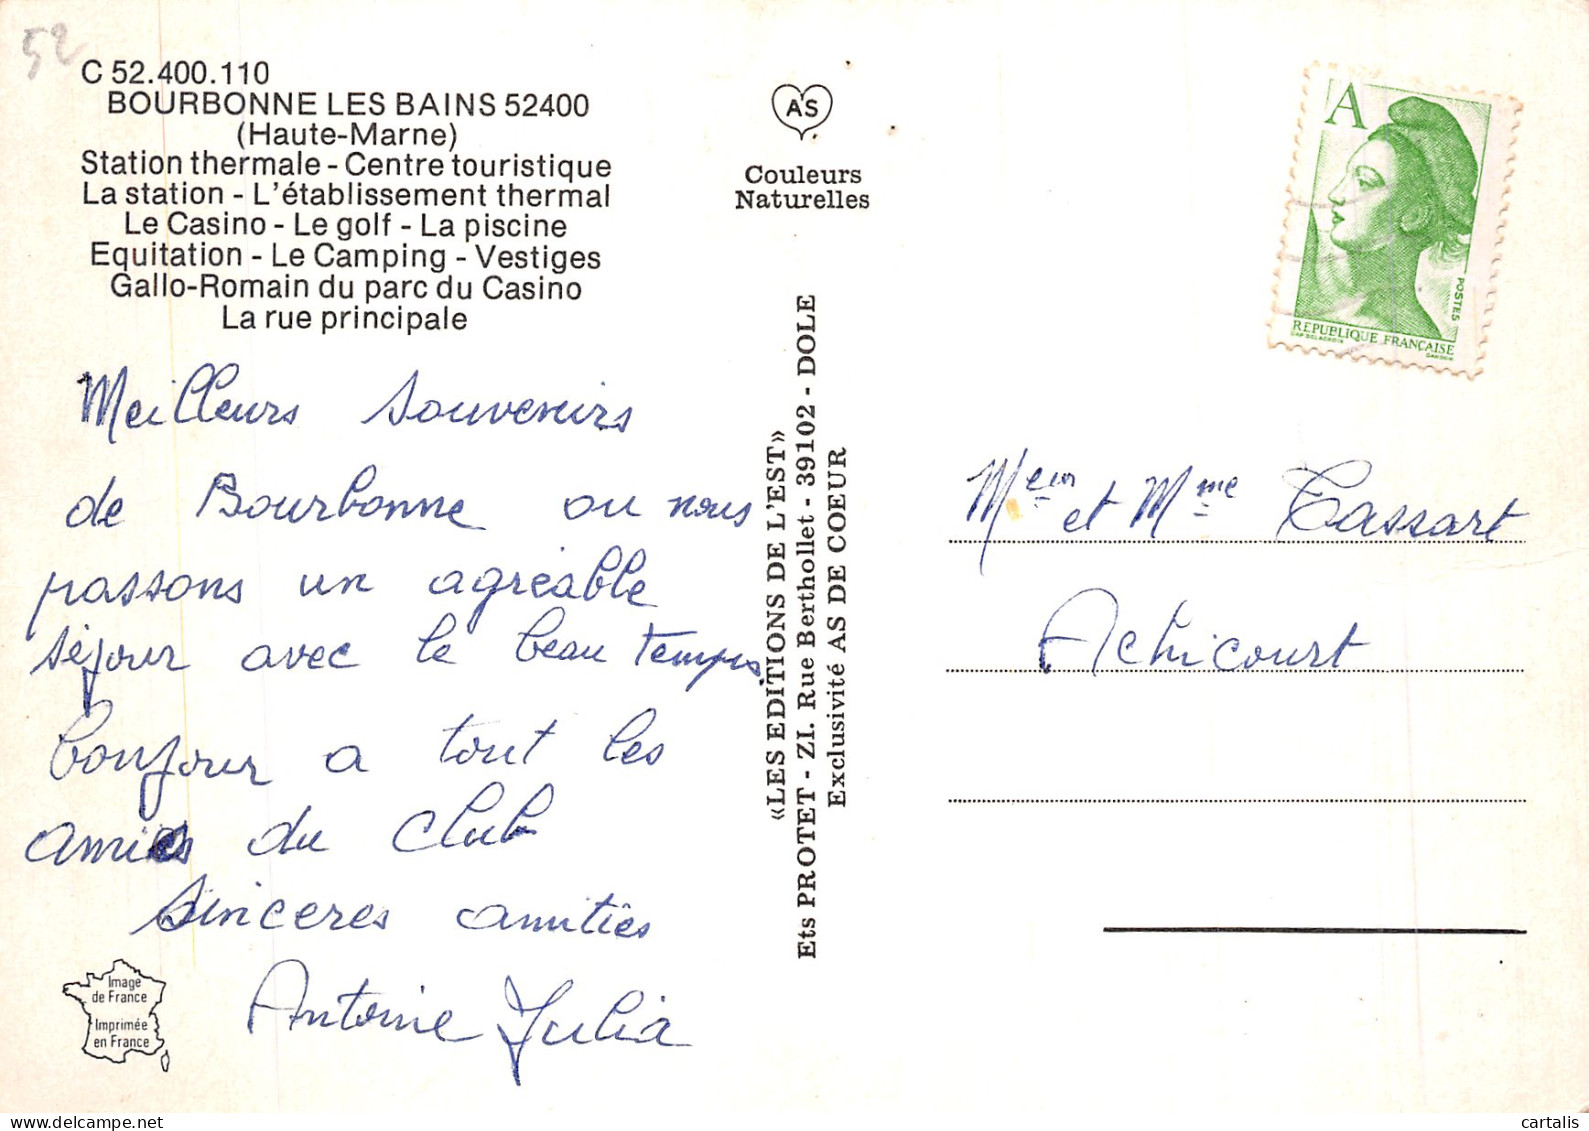 52
C 52.400.110
BOURBONNE LES BAINS 52400
(Haute-Marne)
Station thermale - Centre touristique
La station - L'établissement thermal
Le Casino - Le golf - La piscine
Equitation - Le Camping - Vestiges
Gallo-Romain du parc du Casino
La rue principale
Meilleurs Souvenirs
de Bourbonne ou nous
passons un agréable
séjour avec le beau Temps.
Bonjour a tout les
amis du club
Sinceres amitiés
Antoine Julia
Image
de France
Imprimée
en France
AS
Couleurs
Naturelles
«LES EDITIONS DE L'EST»
Ets PROTET - ZI. Rue Berthollet - 39102 - DOLE
Exclusivité AS DE COEUR
A
POSTES
REPUBLIQUE FRANÇAISE
CAP DELACROIX
GANDON
Meur et Mme Cassart
Achicourt
cartalis